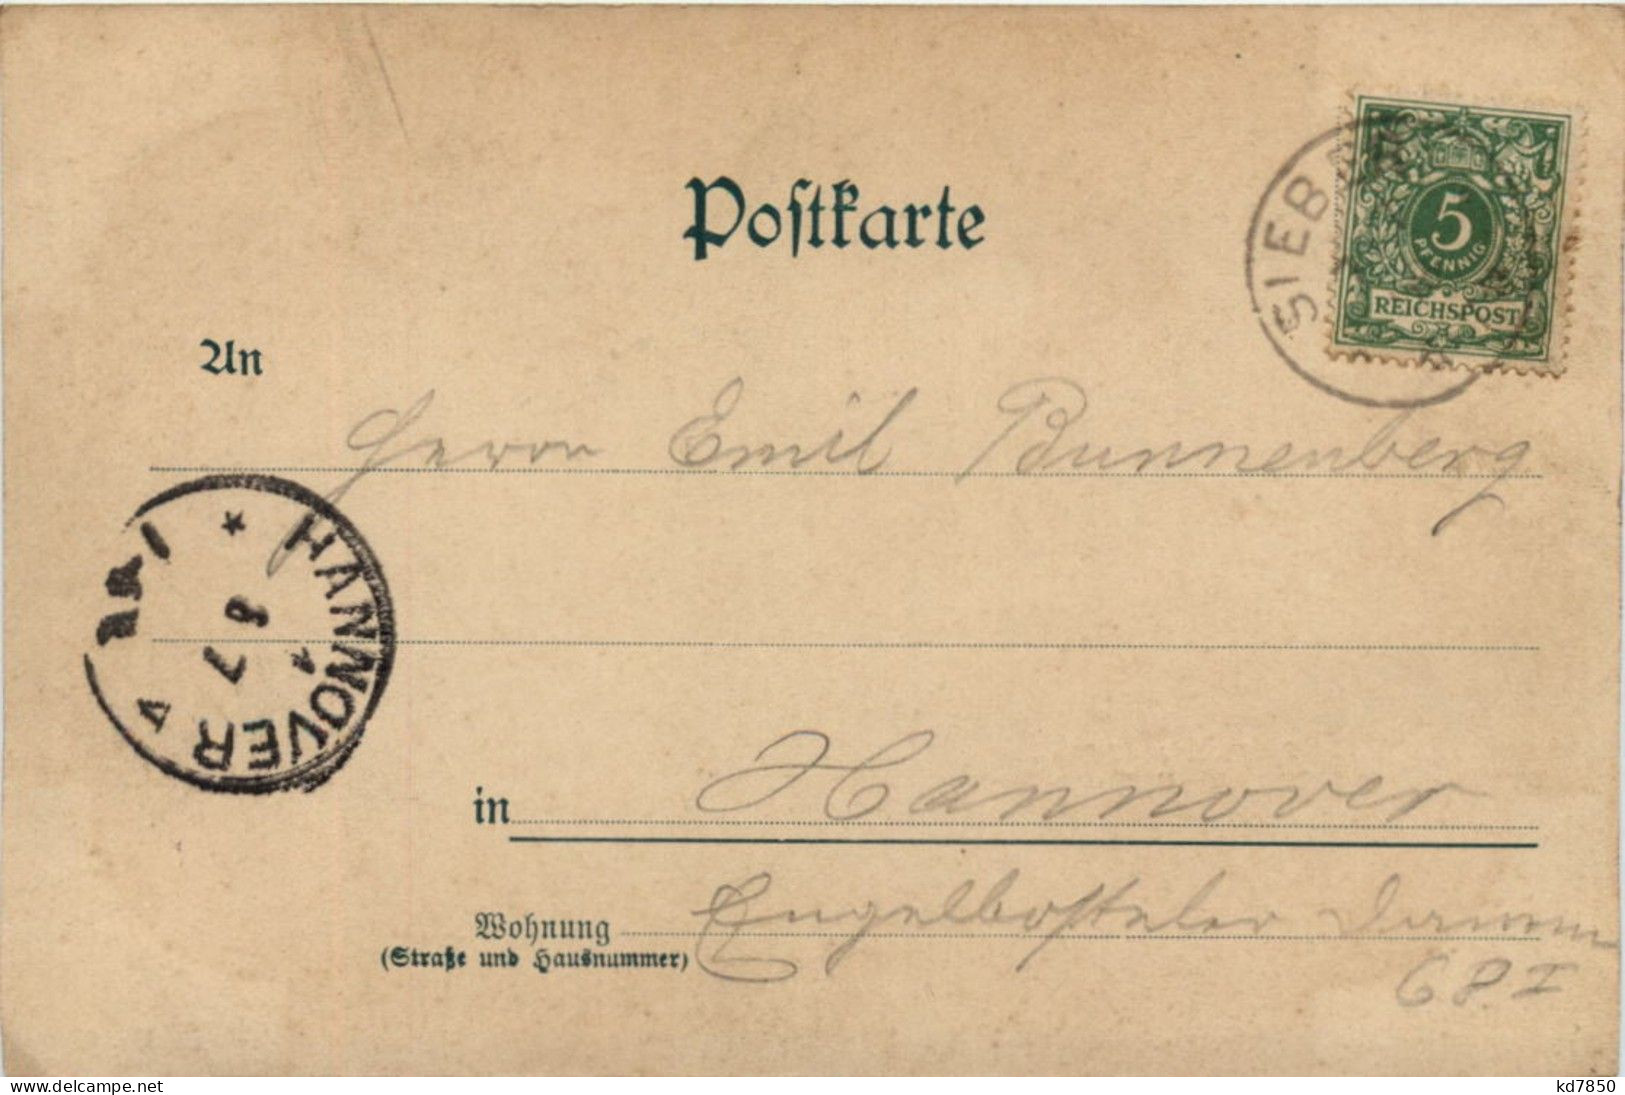 Postkarte
SIEB
5
PFENNIG
REICHSPOST
An
Herrn Emil Bunnenberg
* HANNOVER
8
7
in Hannover
Wohnung Engelbosteler Damm
(Straße und Hausnummer)
68.I
www.delcampe.net
kd7850